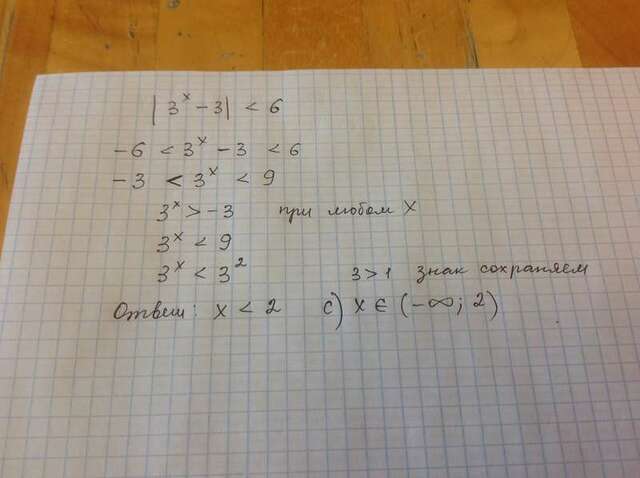 |3ˣ - 3| < 6
-6 < 3ˣ - 3 < 6
-3 < 3ˣ < 9
3ˣ > -3 при любом x
3ˣ < 9
3ˣ < 3² 3 > 1 знак сохраняем
Ответ: x < 2 c) x ∈ (-∞; 2)